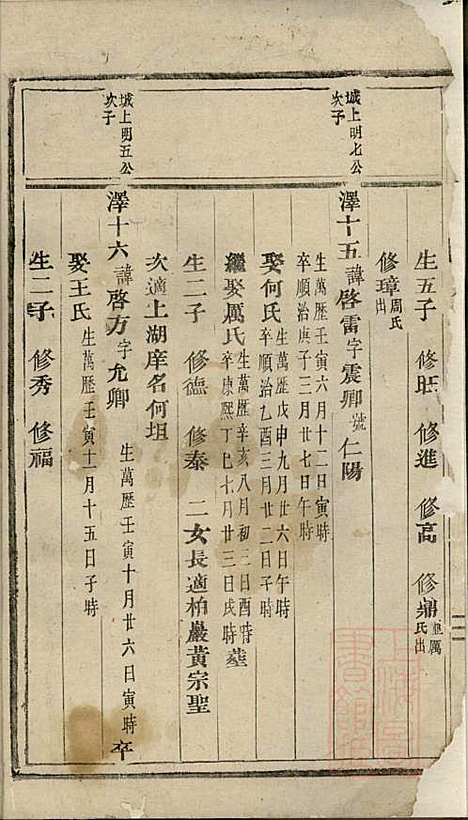 生五子 修旺 修進 修高 修鼎 厲氏出
修璋 周氏出
城上明七公次子
澤十五 諱啓雷字震卿號仁陽
生萬歷壬寅六月十二日寅時
卒順治庚子三月廿七日午時
娶何氏 生萬歷戊申九月廿六日午時 卒順治乙酉三月廿二日午時
繼娶厲氏 生萬歷辛亥八月初二日酉時 卒康熙丁巳七月廿三日戌時
生二子 修德 修秦 二女長適柏巖黃宗聖
次適上湖庠名何坦
城上明五公次子
澤十六 諱啓方字允卿 生萬歷壬寅十月廿六日寅時 卒
娶王氏 生萬歷壬寅十一月十五日子時
生二子 修秀 修福